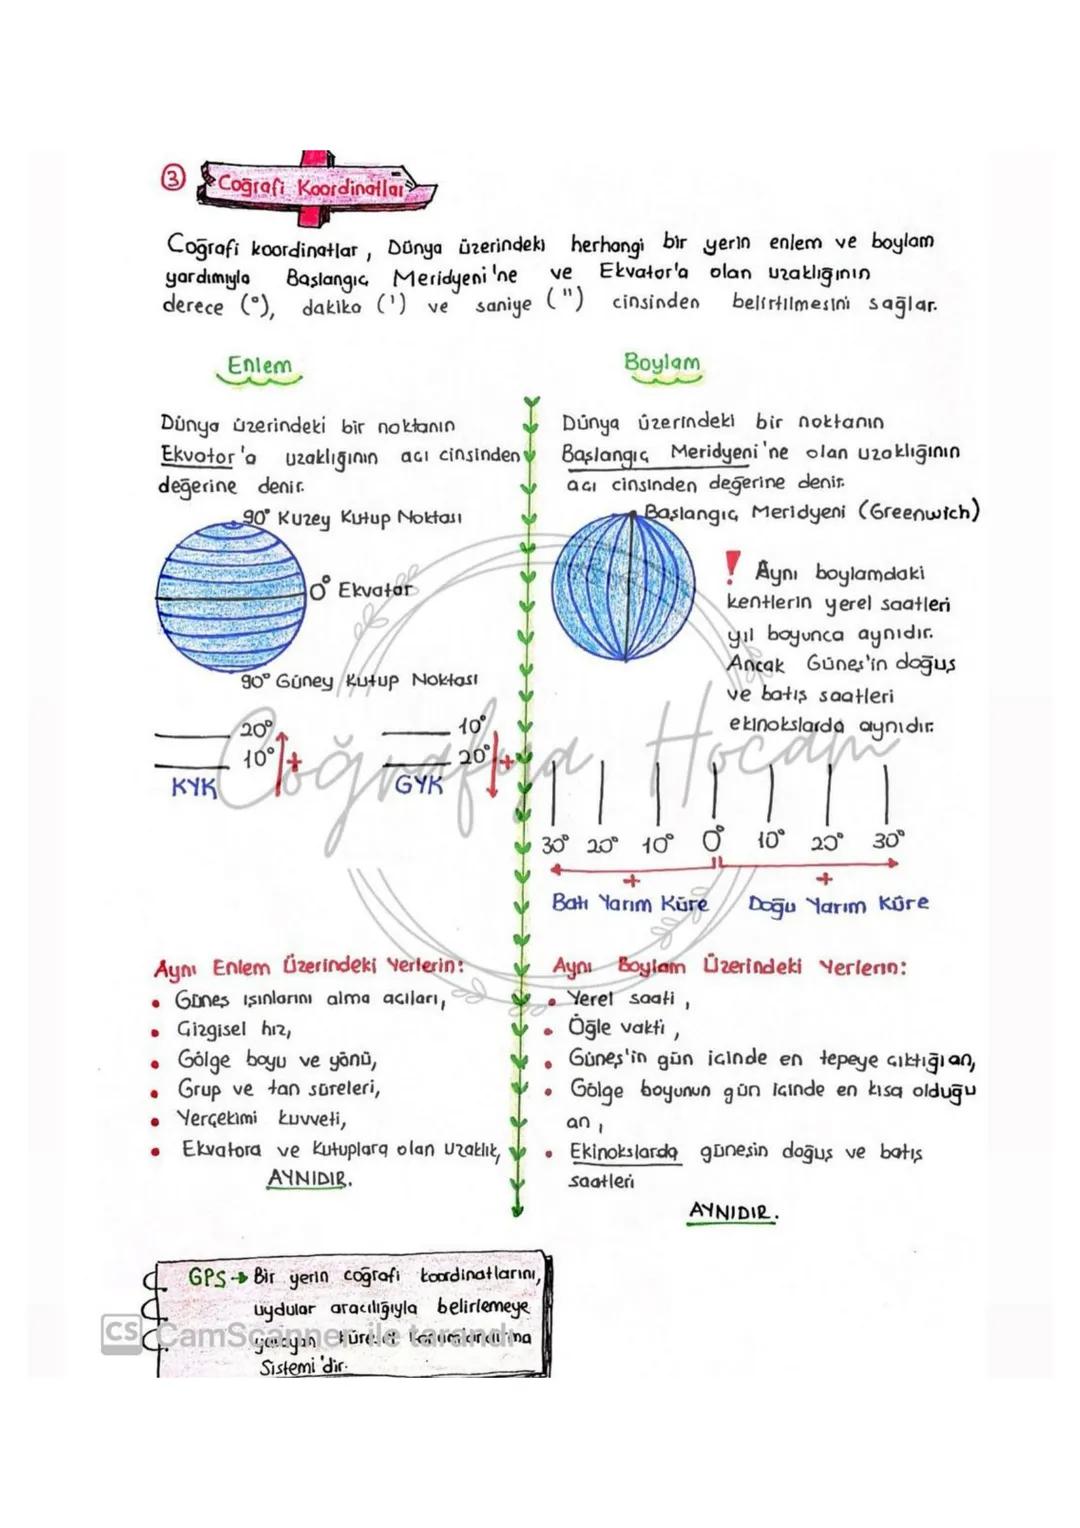 3 Coğrafi Koordinatlar
Coğrafi koordinatlar, Dünya üzerindeki herhangi bir yerin enlem ve boylam
yardımıyla Başlangıç Meridyeni'ne ve Ekvator'a olan uzaklığının
derece (°), dakika (') ve saniye (") cinsinden belirtilmesini sağlar.
Enlem
Dünya üzerindeki bir noktanın
Ekvator'a uzaklığının açı cinsinden
değerine denir.
90° Kuzey Kutup Noktası
0° Ekvator
90° Güney Kutup Noktası
20°
10°
+
KYK
10°
20°
+
GYK
Aynı Enlem Üzerindeki Yerlerin:
• Güneş ışınlarını alma açıları,
• Çizgisel hız,
• Gölge boyu ve yönü,
• Grup ve tan süreleri,
• Yerçekimi kuvveti,
• Ekvatora ve Kutuplara olan uzaklık,
AYNIDIR.
Boylam
Dünya üzerindeki bir noktanın
Başlangıç Meridyeni'ne olan uzaklığının
açı cinsinden değerine denir.
Başlangıç Meridyeni (Greenwich)
! Aynı boylamdaki
kentlerin yerel saatleri
yıl boyunca aynıdır.
Ancak Güneş'in doğuş
ve batış saatleri
ekinokslarda aynıdır.
30° 20° 10° 0° 10° 20° 30°
+ +
Batı Yarım Küre Doğu Yarım Küre
Aynı Boylam Üzerindeki Yerlerin:
• Yerel saati,
• Öğle vakti,
• Güneş'in gün içinde en tepeye çıktığı an,
• Gölge boyunun gün içinde en kısa olduğu
an,
• Ekinokslarda güneşin doğuş ve batış
saatleri
AYNIDIR.
Coğrafya Hocam
GPS → Bir yerin coğrafi koordinatlarını,
uydular aracılığıyla belirlemeye
yarayan Küresel Konumlandırma
Sistemi'dir.
CS CamScanner ile tarandı